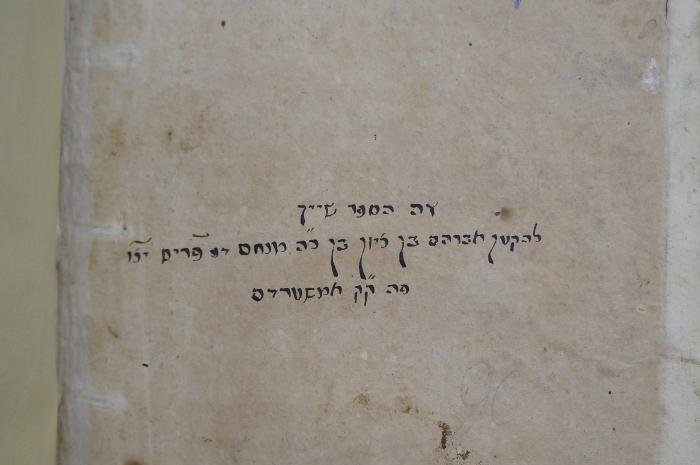 זה הספר שייך
להקטן אברהם בן ציון בן כ״ה מנחם די פריס יצו
פה ק״ק אמשטרדם